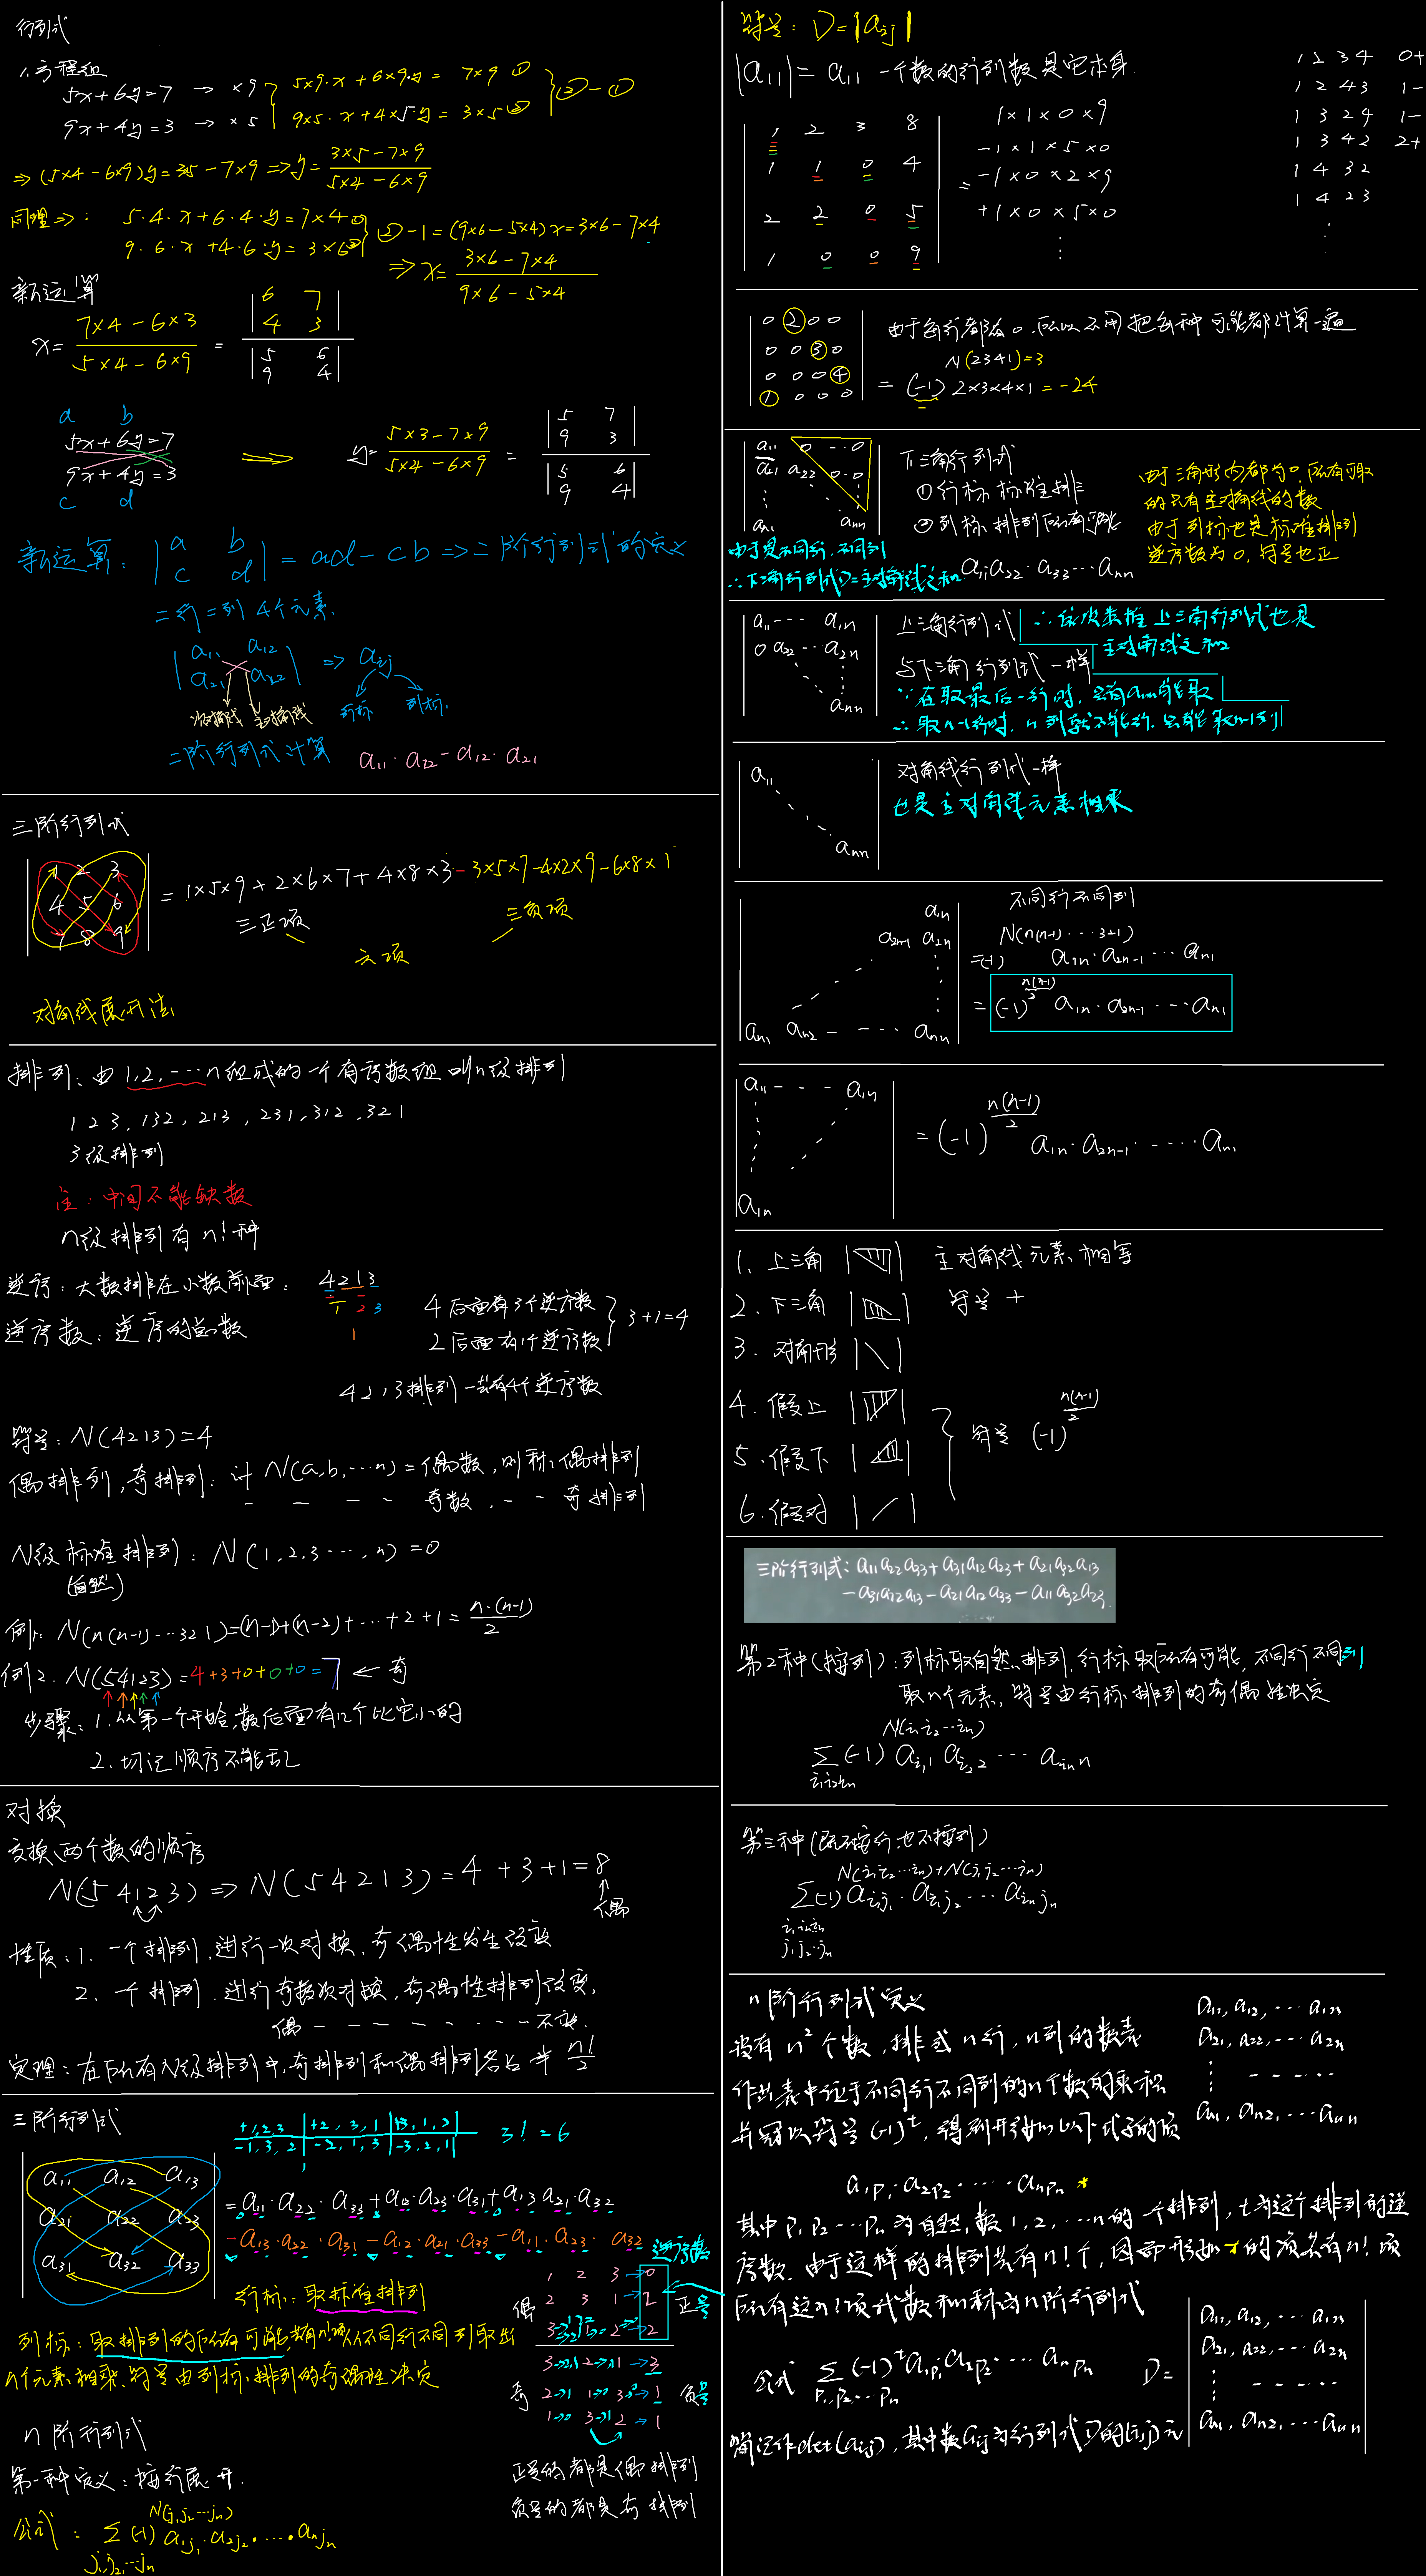 行列式
1.方程组
5x+6y=7 → ×9 5×9·x+6×9·y= 7×9 ①
9x+4y=3 → ×5 9×5·x+4×5·y=3×5② ②-①
⇒(5×4-6×9)y=3×5-7×9⇒y=3×5-7×9/5×4-6×9
同理⇒: 5·4·x+6·4·y=7×4①
9·6·x+4·6·y=3×6② ②-1=(9×6-5×4)x=3×6-7×4
⇒x=3×6-7×4/9×6-5×4
新运算
x=7×4-6×3/5×4-6×9 = |6 7 4 3|/|5 6 9 4|
a b
5x+6y=7
9x+4y=3
c d
⇒ y=5×3-7×9/5×4-6×9 = |5 7 9 3|/|5 6 9 4|
新运算: |a b c d| =ad-cb⇒二阶行列式的定义
二行二列 4个元素.
|a11 a12
a21 a22| ⇒ aij
次对角线 主对角线 行标 列标
二阶行列式计算 a11·a22-a12·a21
三阶行列式
1 2 3
4 5 6
7 8 9
=1×5×9+2×6×7+4×8×3-3×5×7-4×2×9-6×8×1
三正项 三负项
六项
对角线展开法
排列、由1,2,…n组成的一个有序数组叫n级排列
123,132,213,231,312,321
3级排列
注:中间不能缺数
n级排列有n!种
逆序:大数排在小数前面: 4213
1 2 3
1
逆序数:逆序的总数
4后面有3个逆序数
2后面有1个逆序数 3+1=4
4213排列一共有4个逆序数
符号:N(4213)=4
偶排列,奇排列:计N(a,b,…n)=偶数,则称偶排列
- - - - 奇数,- - 奇排列
N级标准排列:N(1,2,3…,n)=0
(自然)
例1:N(n(n-1)…321)=(n-1)+(n-2)+…+2+1=n·(n-1)/2
例2.N(54123)=4+3+0+0+0=7 ← 奇
步骤:1.从第一个开始,数后面有几个比它小的
2.切记顺序不能乱
对换
交换两个数的顺序
N(54123)⇒N(54213)=4+3+1=8
偶
性质:1.一个排列,进行一次对换,奇偶性发生改变
2.一个排列.进行奇数次对换,奇偶性排列改变,
偶 - - - - - - 不变.
定理:在所有N级排列中,奇排列和偶排列各占半 n!/2
三阶行列式
+1,2,3 +2,3,1 +3,1,2
-1,3,2 -2,1,3 -3,2,1
3!=6
a11 a12 a13
a21 a22 a23
a31 a32 a33
=a11·a22·a33+a12·a23·a31+a13·a21·a32
-a13·a22·a31-a12·a21·a33-a11·a23·a32
逆序数
行标:取标准排列
列标:取排列的所有可能,从不同行不同列取出
n个元素相乘,符号由列标排列的奇偶性决定
偶
1 2 3→0
2 3 1→2
3 1 2→2
正号
奇
3 2 1→3
2 1 3→1
1 3 2→1
负号
正号的都是偶排列
负号的都是奇排列
n阶行列式
第一种定义:按行展开.
公式: Σ(-1)N(j1j2…jn) a1j1·a2j2·…·anjn
j1,j2,…jn
符号:D=|aij|
|a11|=a11 一个数的行列数是它本身
1 2 3 8
1 1 0 4
2 2 0 5
1 0 0 9
= 1×1×0×9
-1×1×5×0
-1×0×2×9
+1×0×5×0
⋮
1 2 3 4 0+
1 2 4 3 1-
1 3 2 4 1-
1 3 4 2 2+
1 4 3 2
1 4 2 3
⋮
0 2 0 0
0 0 3 0
0 0 0 4
1 0 0 0
由于各行都有0.所以不用把各种可能都计算一遍
N(2341)=3
=(-1)2×3×4×1=-24
a11 0 …0
a21 a22 0…0
an1 ann
下三角行列式
①行标标准排
②列标排列所有可能
a11a22·a33…ann
由于三角形内都为0,所有可取
的只有主对角线的数
由于列标也是标准排列
逆序数为0,符号也正
由于是不同行,不同列
∴下三角行列式D=主对角线之和
a11… a1n
0 a22…a2n
ann
上三角行列式
与下三角行列式一样
∴依次类推上三角行列式也是
主对角线之和
∵在取最后一行时,只有ann能取
∴取n-1行时,n列就不能行,只能取n-1列
a11
ann
对角线行列式一样
也是主对角线元素相乘
a1n
a2n-1 a2n
an1 an2 - - - ann
不同行不同列
=(-1)N(n(n-1)…321) a1n·a2n-1…an1
=(-1)n(n-1)/2 a1n·a2n-1…an1
a11 - - - a1n
a1n
=(-1)n(n-1)/2 a1n·a2n-1·…·an1
1、上三角 主对角线元素相等
2.下三角 符号+
3.对角形
4.假上
5.假下 符号(-1)n(n-1)/2
6.假对
三阶行列式:a11a22a33+a31a12a23+a21a32a13
-a31a22a13-a21a12a33-a11a32a23.
第2种(按列):列标取自然排列,行标取所有可能,不同行不同列
取n个元素,符号由行标排列的奇偶性决定
Σ(-1)N(i1i2…in) ai11 ai22…ainn
i1i2…in
第三种(既不按行也不按列)
Σ(-1)N(i1i2…in)+N(j1j2…jn) ai1j1·ai2j2…ainjn
i1i2…in
j1j2…jn
n阶行列式定义
设有n²个数,排成n行,n列的数表
a11,a12,…a1n
a21,a22,…a2n
⋮ - - - - -
an1,an2,…ann
作出表中位于不同行不同列的n个数的乘积
并冠以符号(-1)t,得到形如以下式子的项
a1p1·a2p2·…·anpn *
其中p1p2…pn为自然数1,2,…n的一个排列,t为这个排列的逆
序数.由于这样的排列共有n!个,因而形如*的项共有n!项
所有这n!项代数和称为n阶行列式
公式 Σ(-1)t a1p1a2p2…anpn D=
p1,p2…pn
a11,a12,…a1n
a21,a22,…a2n
⋮ - - - - -
an1,an2,…ann
简记作det(aij),其中数aij为行列式D的(i,j)元